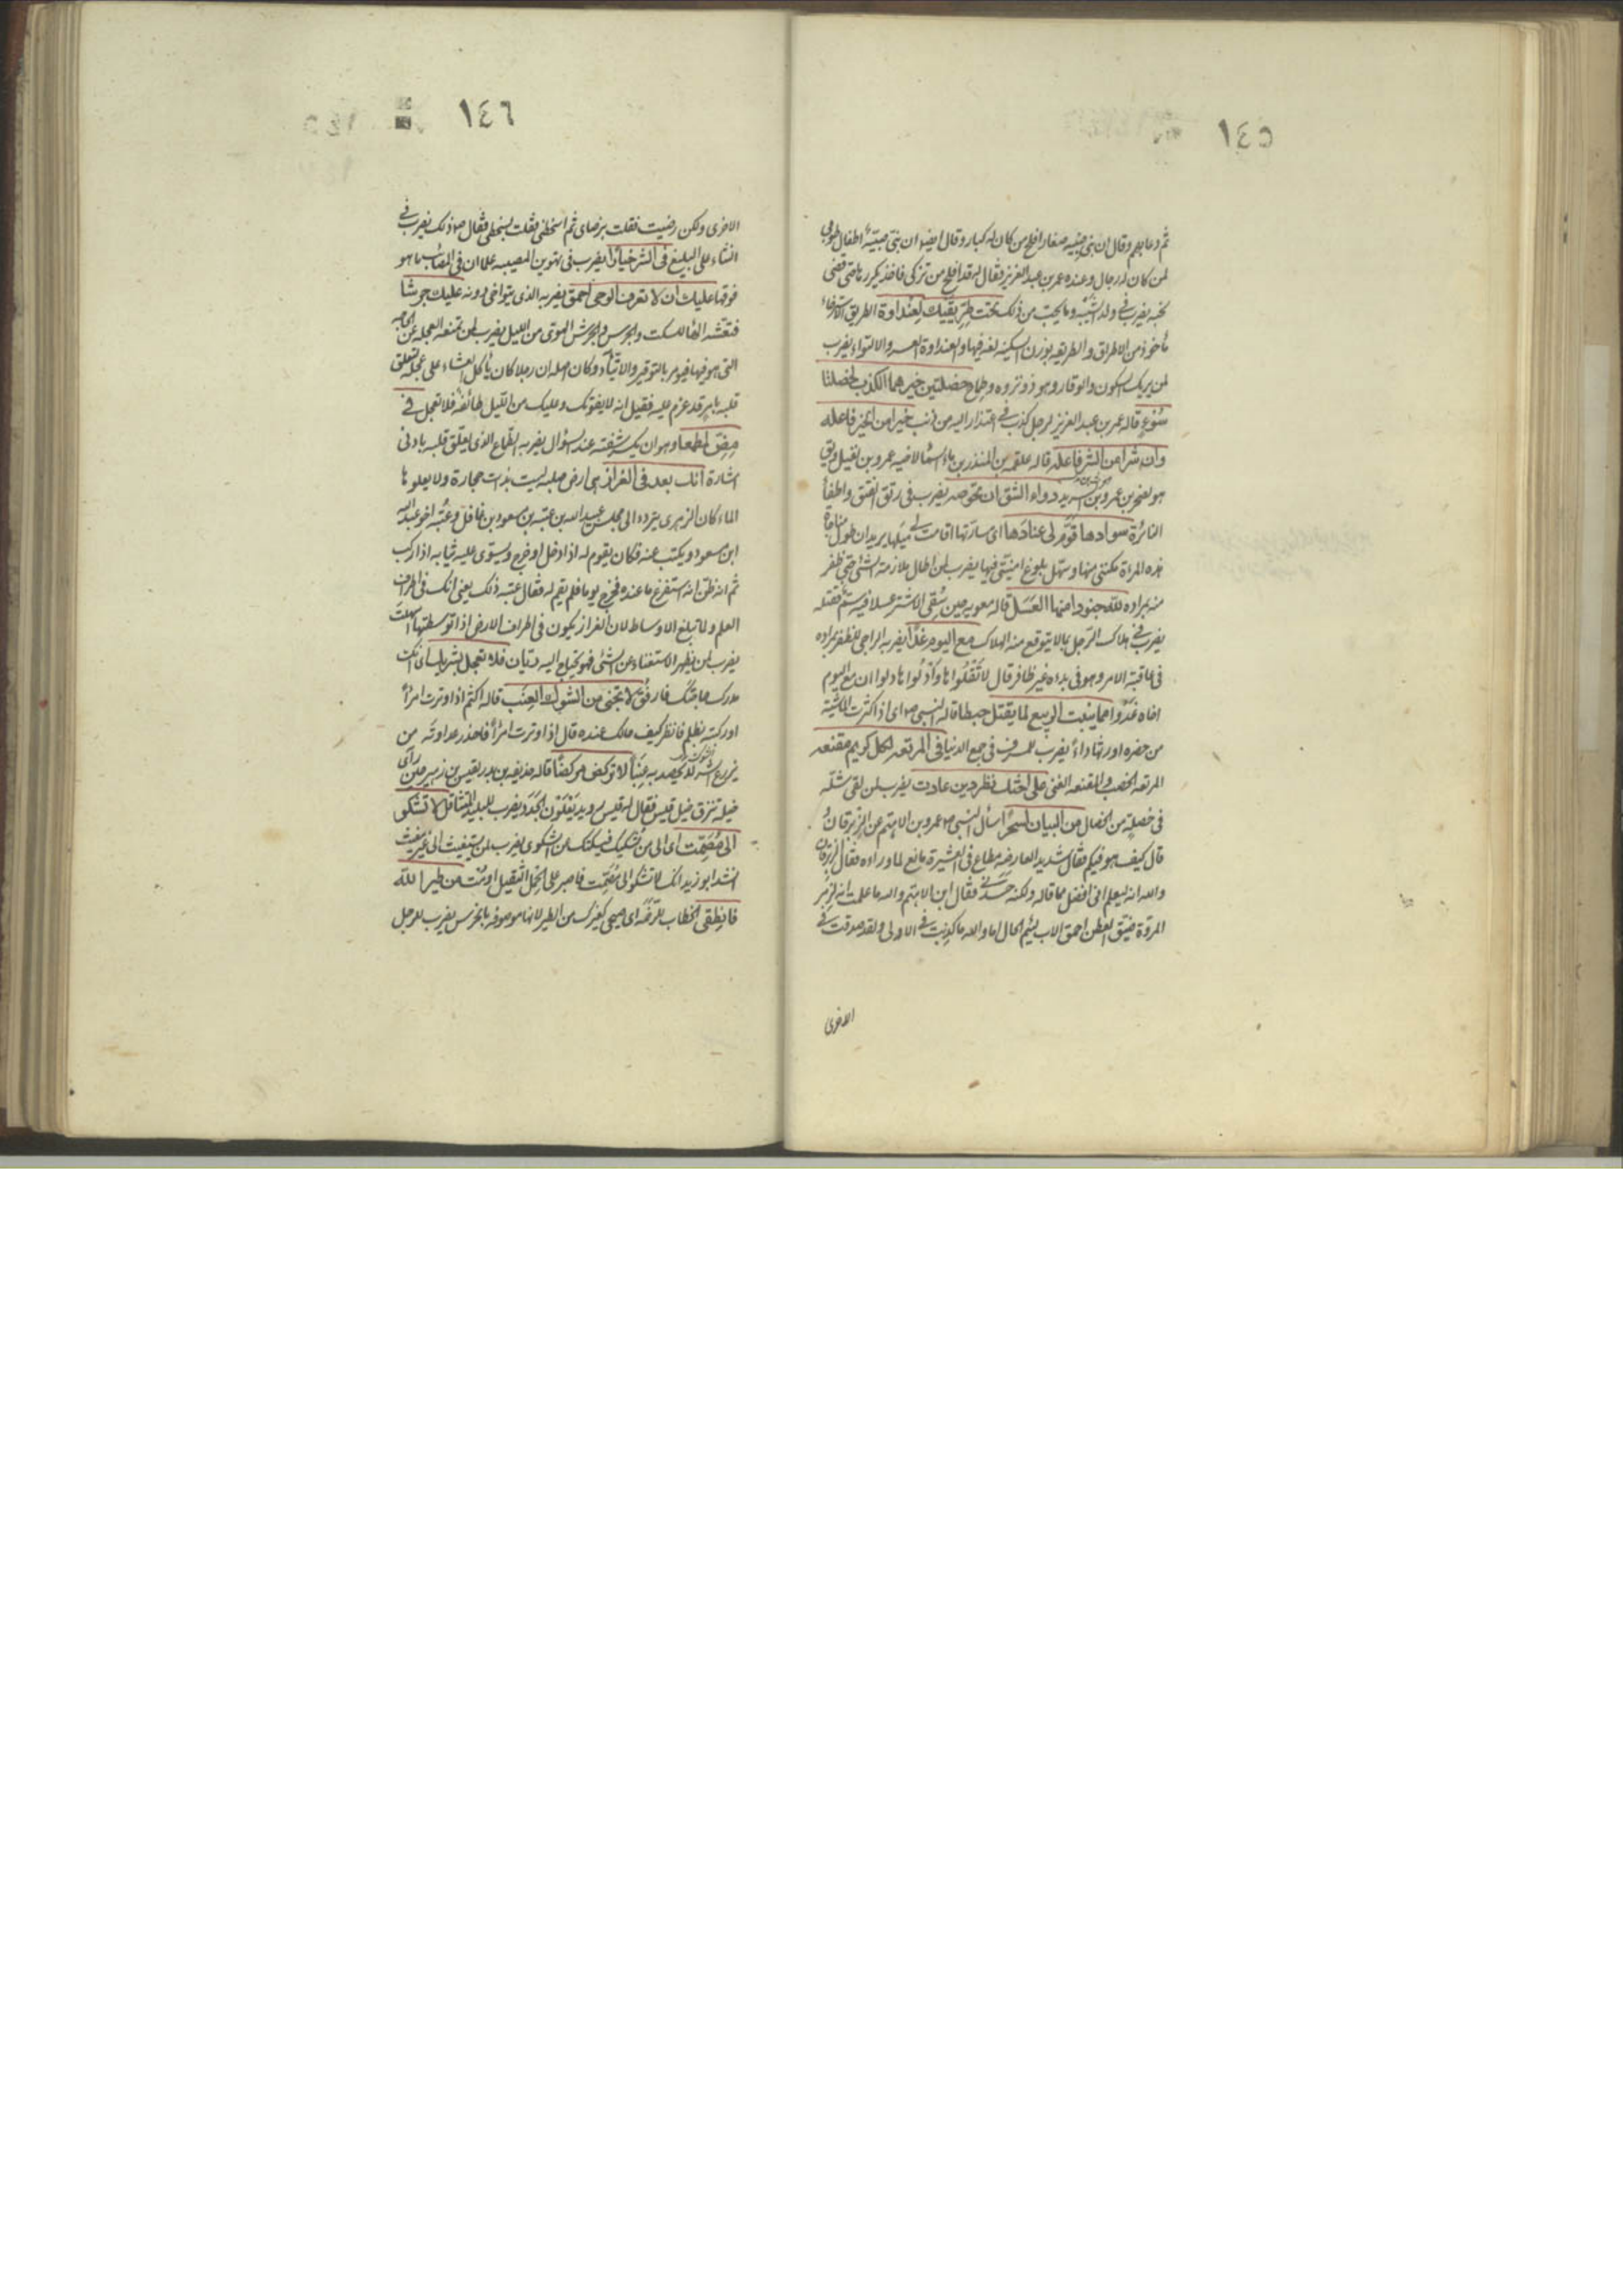 ١٤٥
ثم دعا بهم وقال ان بنى صبية صغار افلح من كان له كبار وقال ايضا ان بنى صبية اطفال طوبى
لمن كان له رجال وعنده عمر بن عبد العزيز فقال له قد افلح من تزكى فاخذ يكررها حتى قضى
نحبه يضرب فى ولد الشيبة وما يحب من ذلك تحت طريقتك لعنداوة الطريق الاسترخاء
مأخوذ من الاطراق والطريقه بوزن السكينه لغه فيها والعنداوة العسر والالتواء يضرب
لمن يريك السكون والوقار وهو ذو نزوه وطماح خصلتين خيرهما الكذب لخصلتا
سوء قاله عمر بن عبد العزيز لرجل كذب فى اعتذار اليه من ذنب خيرا من الخير فاعله
وان شرا من الشر فاعله قاله علقمه بن المنذر بن ماء السما لاخيه عمرو بن نفيل وقيل
هو لصخر بن عمرو بن الشريد دواء الشق ان تحوصه يضرب فى رتق الفتق واطفأ
النائرة سوادها قوم لى عنادها اى سارتها اقامت لى ميلها يريد ان طول مناجاة
هذه المراة مكننى منها وسهل بلوغ امنيتى فيها يضرب لمن اطال ملازمة الشئ حتى ظفر
منه بمراده لله جنودا منها العسل قاله معويه حين سقى الاشتر عسلا فيه سم فقتله
يضرب فى هلاك الرجل بما لا يتوقع منه الهلاك مع اليوم غدا يضربه الراجى للظفر بمراده
فى عاقبة الامر وهو فى بداه غير ظافر قال لا تقلواها وادلواها دلوا ان مع اليوم
اخاه غدوا مما ينبت الربيع لما يقتل حبطا قاله النبى ص اى اذا اكثرت الماشية
من خضره اورثها داء يضرب للمسرف فى جمع الدنيا فى المرتعه لكل كريم مقنعه
المرتعه الخصب والمقنعه الغنى على اختك تطردين عادت يضرب لمن لقى مثله
فى خصلة من الخصال من البيان لسحرا سأل النبى ص عمرو بن الاهتم عن الزبرقان
قال كيف هو فيكم فقال شديد العارضه مطاع فى العشيرة مانع لما وراءه فقال الزبرقان
والله انه ليعلم انى افضل مما قاله ولكنه حسدنى فقال ابن الاهتم والله ما علمت انه لزمر
المروة ضيق العطن احمق الاب لئيم الخال اما والله ما كذبت فى الاولى ولقد صدقت فى
الاخرى
١٤٦
الاخرى ولكن رضيت فقلت برضاى ثم اسخطنى فقلت بسخطى فقال ص ذلك يضرب فى
الثناء على البليغ فى الشر خيارا يضرب فى تهوين المصيبه علما ان فى المصاب ما هو
فوقها عليك ان لا تعرف الوحى احمق يضربه الذى يتواحى دونه عليك جرشا
فتعشه الها للسكت والجرس والجرش الهوى من الليل يضرب لمن تمنعه العجله عن الحاجه
التى هو فيها فيومر بالتوقير والاتياد وكان اصله ان رجلا كان ياكل العشاء على عجله لتعلق
قلبه بامر قد عزم عليه فقيل انه لا يفوتك وعليك من الليل طائفة فلا تعجل فى
مض لمطمعا وهو ان يكسر شفته عند السؤال يضربه الطماع الذى يعلق قلبه بادنى
اشارة انك بعد فى العزاز هى ارض صلبه ليست بذات حجارة ولا يعلوها
الماء كان الزهرى يتردد الى مجلس عبيد الله بن عتبه بن مسعود بن غافل وعتبه اخو عبد الله
ابن مسعود ويكتب عنه فكان يقوم له اذا دخل او خرج ويسوى عليه ثيابه اذا ركب
ثم انه ظن انه استفرغ ما عنده فخرج يوما فلم يقم له فقال عتبه ذلك يعنى انك فى اطراف
العلم ولما تبلغ الاوساط لان العزاز يكون فى اطراف الارض اذا توسطتها اسهلت
يضرب لمن يظهر الاستغناء عن الشئ فهو يحتاج اليه فلا تعجل
مدرك حاجتك فارفق لا تجنى من الشوك العنب قاله اكثم اذا وترت امرأ
اوركبته بظلم فانظر كيف حالك عنده قال اذا وترت امرأ فاحذر عداوته من
يزرع الشوك لا يحصد به عنبا لا تركض مركضا قاله حذيفه بن بدر لقيس بن زهير حين رآى
خيله تنزق خيل قيس فقال له قيس رويد يعلون الجدد يضرب للبليد المتثاقل لا تشكو
الى مصمت اى الى من يشكيك فيسكتك عن الشكوى يضرب لمن يستغيث الى غير مغيث
انشد ابو زيد انك لا تشكو الى مصمت فاصبر على الحمل الثقيل او مت من طير الله
فانطقى الخطاب للرخمه اى صيحى كغيرك من الطير لانها موصوفه بالخرس يضرب للرجل